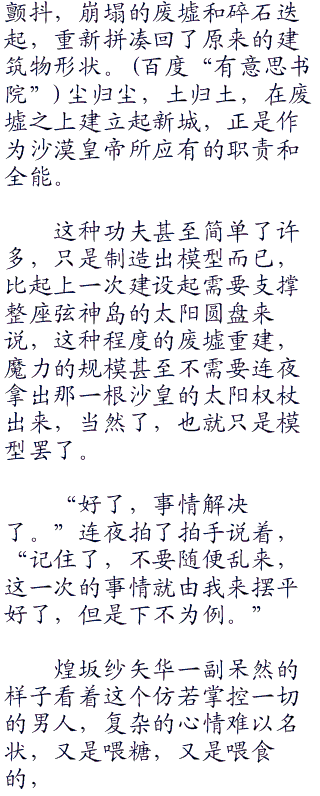 颤抖，崩塌的废墟和碎石迭
起，重新拼凑回了原来的建
筑物形状。(百度“有意思书
院”)尘归尘，土归土，在废
墟之上建立起新城，正是作
为沙漠皇帝所应有的职责和
全能。
这种功夫甚至简单了许
多，只是制造出模型而已，
比起上一次建设起需要支撑
整座弦神岛的太阳圆盘来
说，这种程度的废墟重建，
魔力的规模甚至不需要连夜
拿出那一根沙皇的太阳权杖
出来，当然了，也就只是模
型罢了。
“好了，事情解决
了。”连夜拍了拍手说着，
“记住了，不要随便乱来，
这一次的事情就由我来摆平
好了，但是下不为例。”
煌坂纱矢华一副呆然的
样子看着这个仿若掌控一切
的男人，复杂的心情难以名
状，又是喂糖，又是喂食
的，